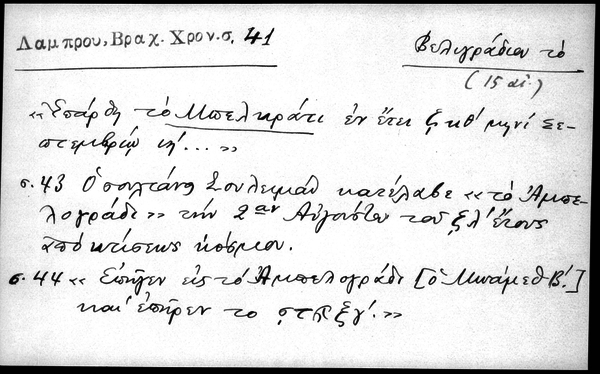 Λαμπρου, Βραχ. Χρον.σ. 41
Βελιγράδιον τὸ
(15 αἰ.)
«Ἐπάρθη τὸ Μπελκράτι ἐν ἔτει ζκθ' μηνὶ Σε-
πτεμβρίῳ ιη'...»
σ. 43 Ὁ σουλτάνος Σουλεϊμὰν κατέλαβε «τὸ Ἀμπε-
λογράδι» τὴν 2αν Αὐγούστου τοῦ ζλ' ἔτους
ἀπὸ κτίσεως κόσμου.
σ. 44 « Ἐπῆγεν εἰς τὸ Ἀμπελογράδι [ὁ Μωάμεθ Β'.]
καὶ ἐπῆρεν το ξγ'.»